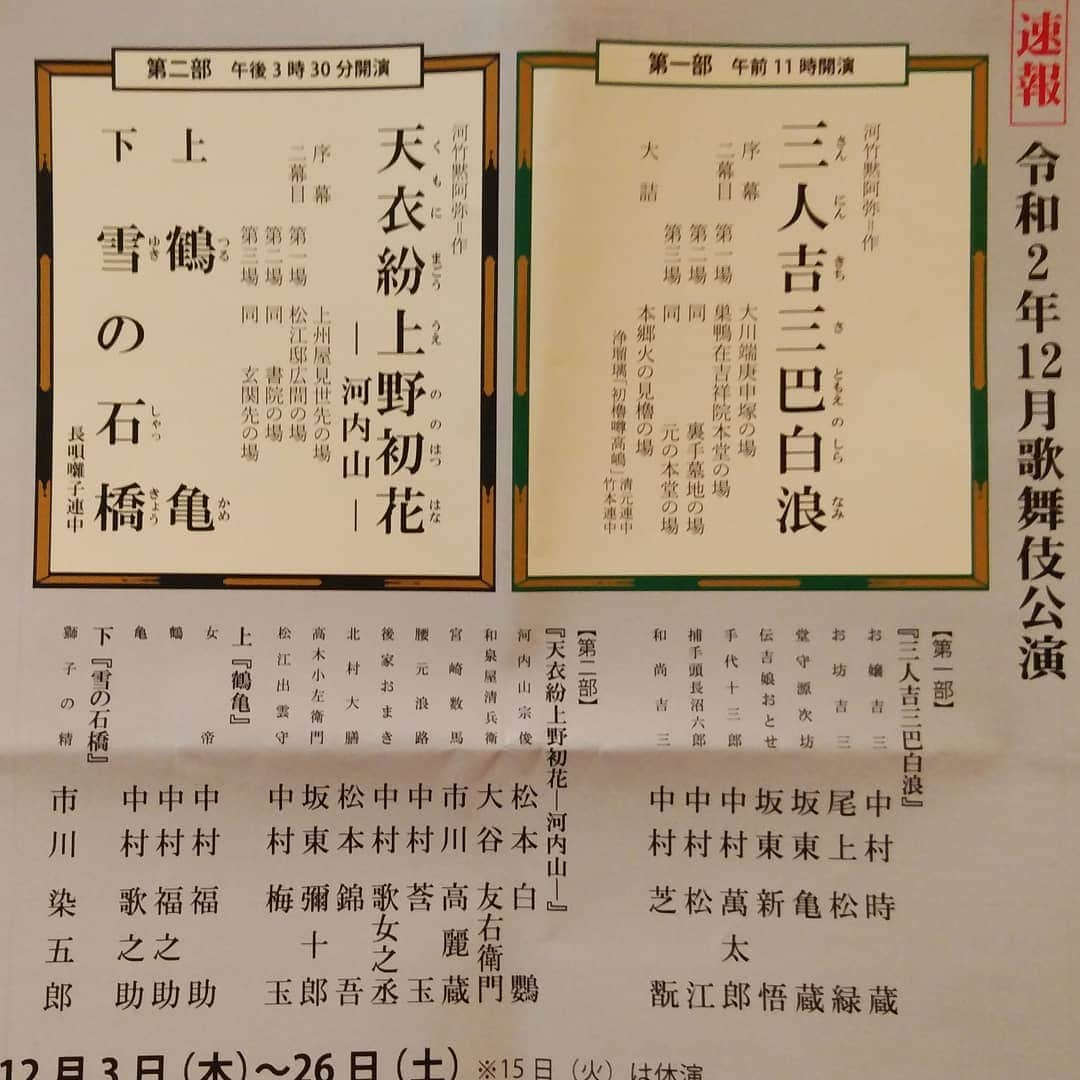 速報
令和2年12月歌舞伎公演
第一部 午前11時開演
河竹黙阿弥=作
三人吉三巴白浪
さんにんきちさともえのしらなみ
序幕 大川端庚申塚の場
二幕目 第一場 巣鴨在吉祥院本堂の場
第二場 同 裏手墓地の場
第三場 同 元の本堂の場
大詰 本郷火の見櫓の場
浄瑠璃「初櫓噂高嶋」 清元連中
竹本連中
第二部 午後3時30分開演
河竹黙阿弥=作
天衣紛上野初花
くもにまごううえののはつはな
―河内山―
序幕 上州屋見世先の場
二幕目 第一場 松江邸広間の場
第二場 同 書院の場
第三場 同 玄関先の場
上 鶴亀
つるかめ
下 雪の石橋
ゆき しゃっきょう
長唄囃子連中
【第一部】
『三人吉三巴白浪』
お嬢吉三 中村時蔵
お坊吉三 尾上松緑
堂守源次坊 坂東亀蔵
伝吉娘おとせ 坂東新悟
手代十三郎 中村萬太郎
捕手頭長沼六郎 中村松江
和尚吉三 中村芝翫
【第二部】
『天衣紛上野初花―河内山―』
河内山宗俊 松本白鸚
和泉屋清兵衛 大谷友右衛門
宮崎数馬 市川高麗蔵
腰元浪路 中村莟玉
後家おまき 中村歌女之丞
北村大膳 松本錦吾
高木小左衛門 坂東彌十郎
松江出雲守 中村梅玉
上『鶴亀』
女帝 中村福助
鶴 中村福之助
亀 中村歌之助
下『雪の石橋』
獅子の精 市川染五郎
12月3日(木)〜26日(土) ※15日(火)は休演